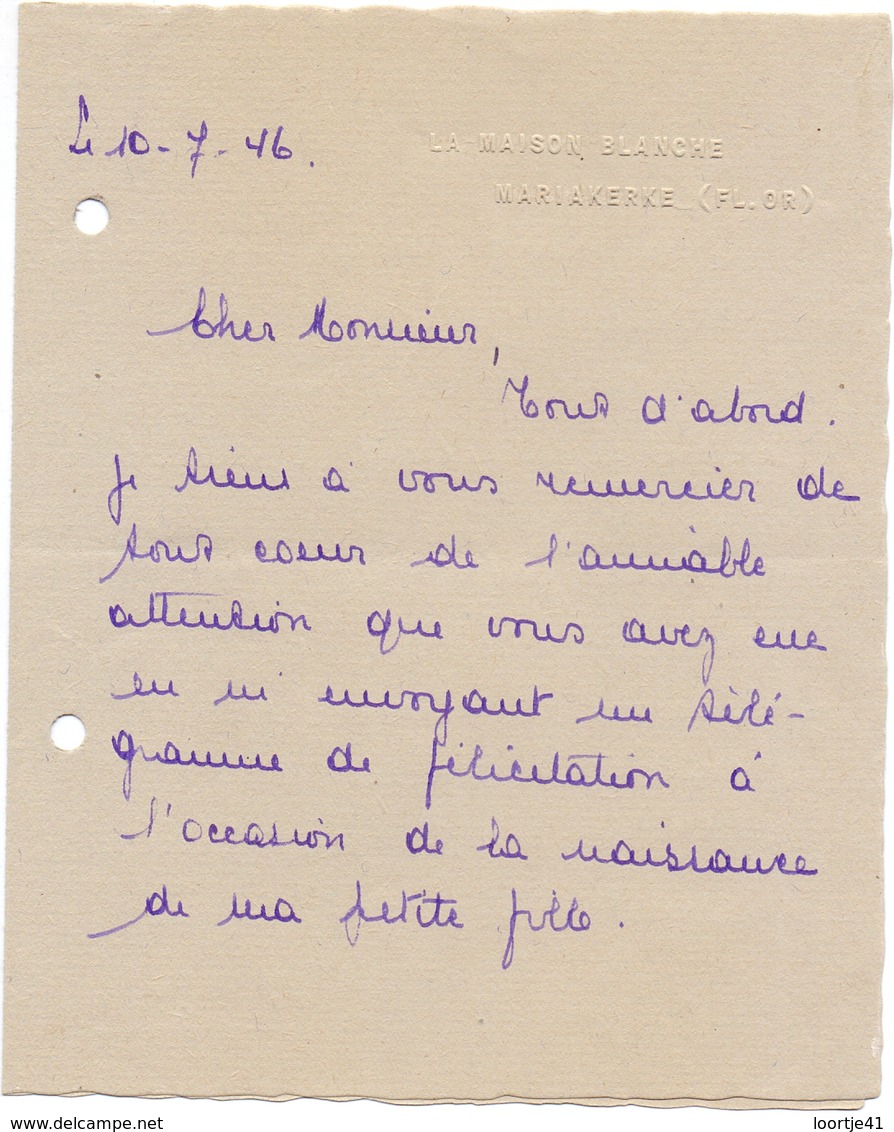 Le 10-7-46.
LA MAISON BLANCHE
MARIAKERKE (FL.OR)
Cher Monsieur,
Tout d'abord.
Je tiens à vous remercier de
tout coeur de l'aimable
attention que vous avez eue
en m'envoyant un télé-
gramme de félicitation à
l'occasion de la naissance
de ma petite fille.
www.delcampe.net
loortje41